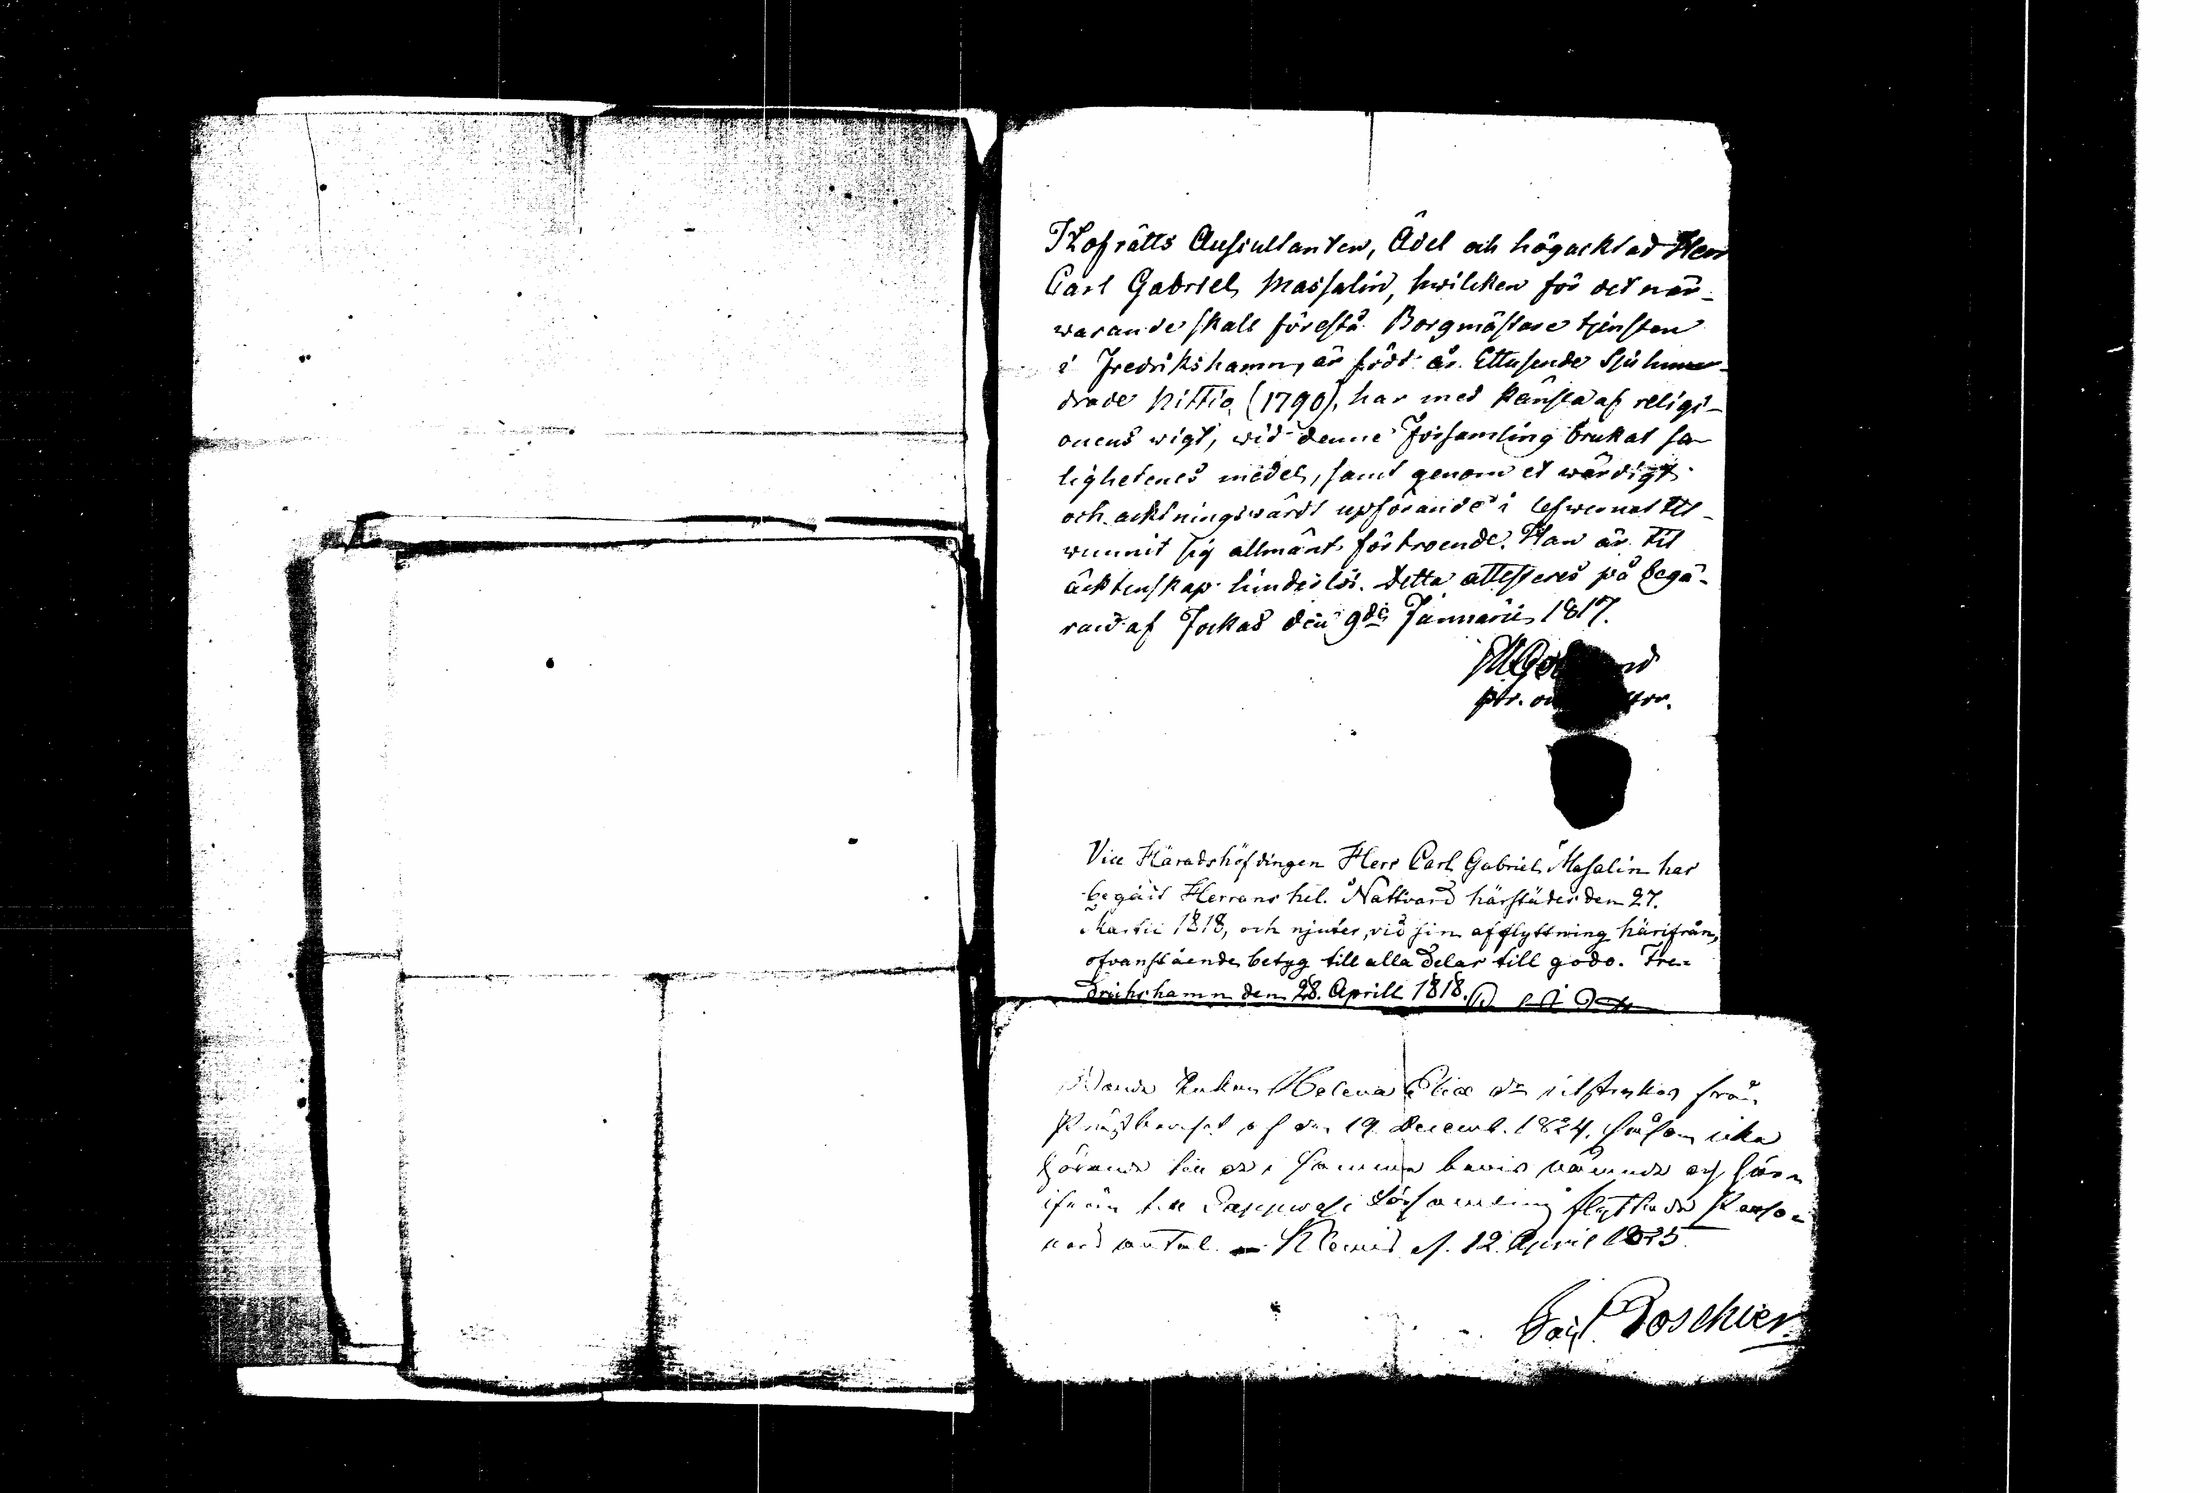 Hofrätts Auscultanten, Ädel och högacktad Herr
Carl Gabriel Massalin, hwilken för det när-
warande skall förestå Borgmästare tjensten
i Fredrikshamn, är född år Ettusende Sjuhun-
drade Nittio (1790), har med känsla af religi-
onens wigt, wid denne Församling brukat sa-
lighetenes medel, samt genom et wärdigt
och acktningswärdt upförande i lefwernet till-
wunnit sig allmänt förtroende. Han är til
äcktenskap hinderlös. Detta attesteres på begä-
ran af Jockas den 9de Januarii 1817.
Vice Häradshöfdingen Herr Carl Gabriel Masalin har
begådt Herrans hel. Nattvard härstädes den 27.
Martii 1818, och njuter, vid sin afflyttning härifrån,
ofvanstående betyg till alla delar till godo. Fre-
drichshamn den 28. Aprill 1818.
Enkan Helena utstrykas från
Prästbeviset af den 19 Decemb. 1824, såsom icke
hörande till de i samma bevis nämnde och härr
ifrån till församling flyttade Perso-
ners antal. d. 12 April 1825
Poschier